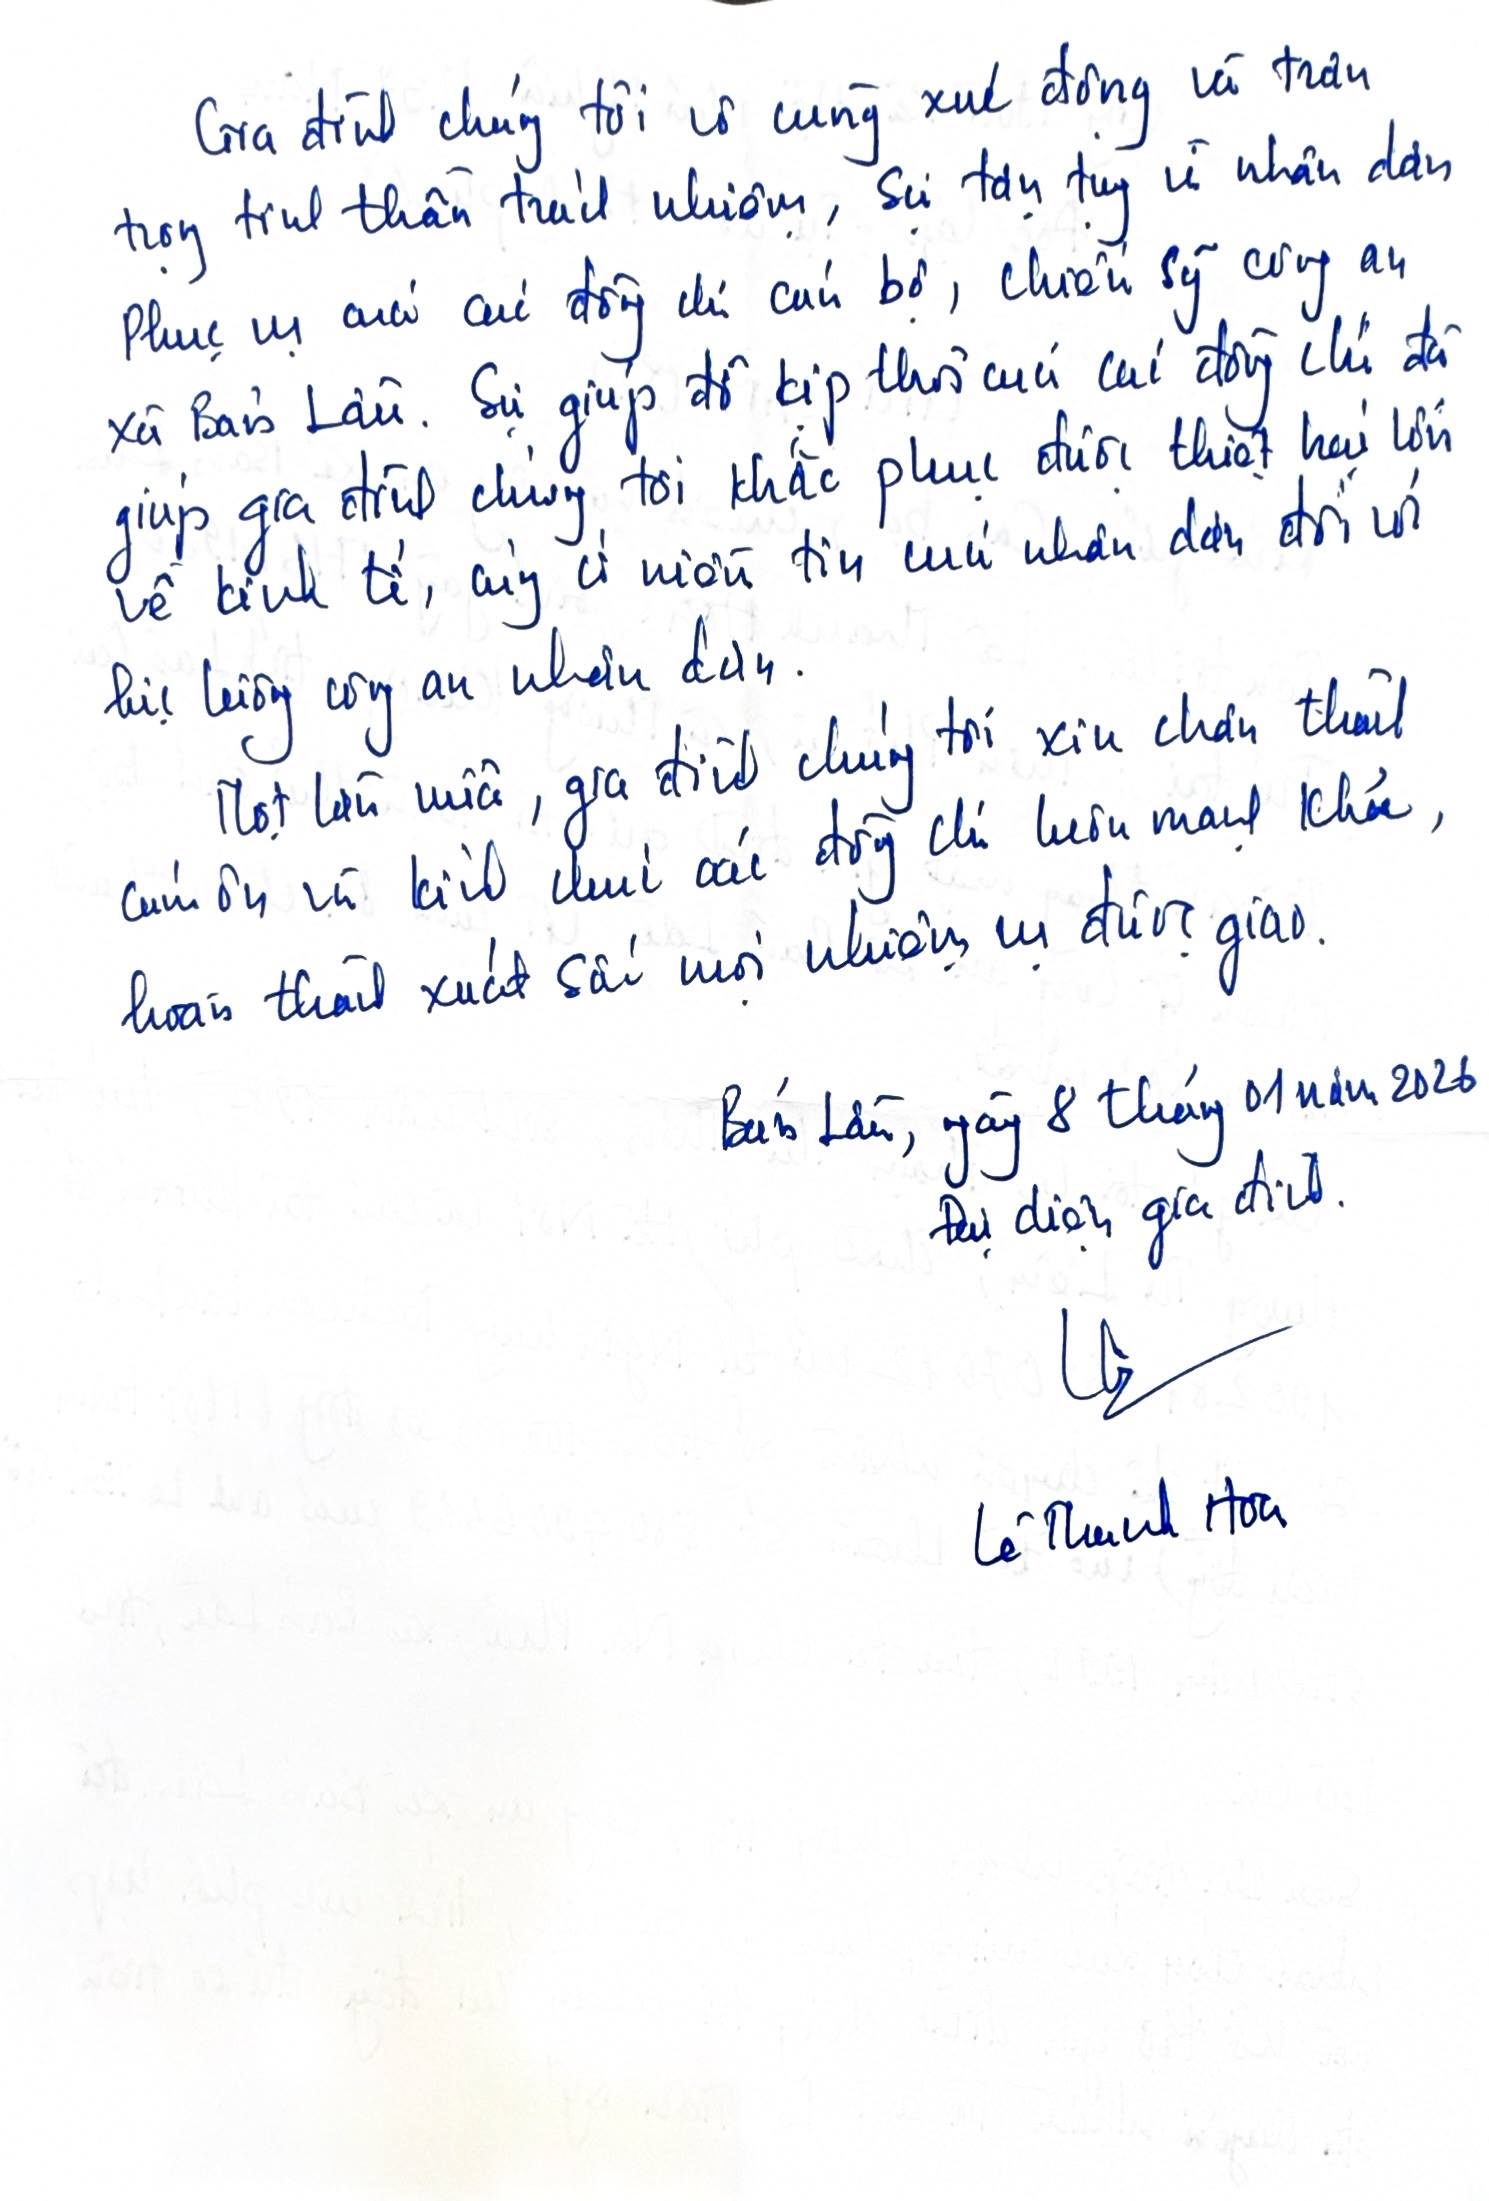 Gia đình chúng tôi vô cùng xúc động và trân
trọng tinh thần trách nhiệm, sự tận tụy vì nhân dân
phục vụ của các đồng chí cán bộ, chiến sỹ công an
xã Bản Lầu. Sự giúp đỡ kịp thời của các đồng chí đã
giúp gia đình chúng tôi khắc phục được thiệt hại lớn
về kinh tế, củng cố niềm tin của nhân dân đối với
lực lượng công an nhân dân.
Một lần nữa, gia đình chúng tôi xin chân thành
cảm ơn và kính chúc các đồng chí luôn mạnh khỏe,
hoàn thành xuất sắc mọi nhiệm vụ được giao.
Bản Lầu, ngày 8 tháng 01 năm 2026
Đại diện gia đình.
Lê Thanh Hoa